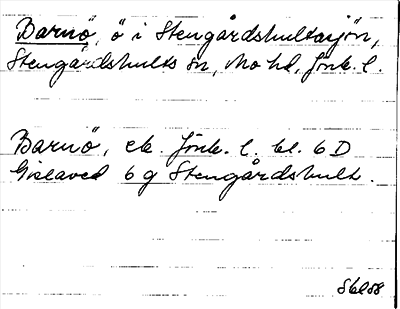 Barnö, ö i Stengårdshultasjön,
Stengårdshults sn, Mo hd, Jönk. l.
Barnö, ek. Jönk. l. bl. 6 D
Gislaved 6 g Stengårdshult.